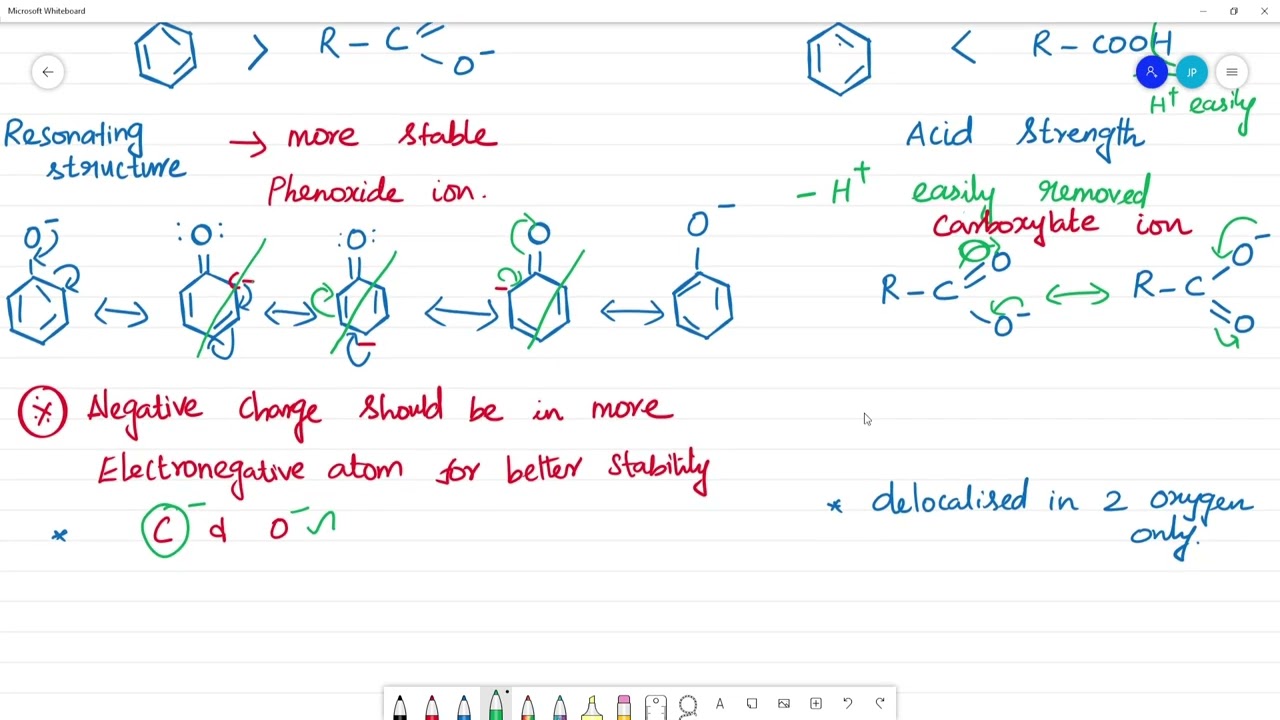 Microsoft Whiteboard
> R – C O⁻
< R – COOH
JP
H⁺ easily
Resonating structure → more stable
Phenoxide ion.
Acid Strength
– H⁺ easily removed
Carboxylate ion
O⁻ :O: :O: O O⁻
R – C O O⁻ ↔ R – C O⁻ O
* Negative charge should be in more
Electronegative atom for better stability
* C⁻ & O⁻
* delocalised in 2 oxygen
only.
A